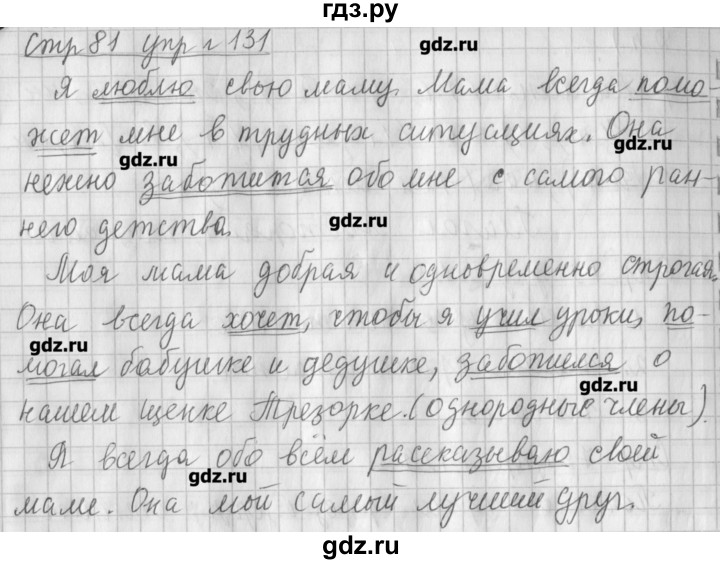 гдз.ру
Стр 81 упр г 131
gdz.ru
Я люблю свою маму. Мама всегда помо-
жет мне в трудных ситуациях. Она
gdz.ru
gdz.ru
нежно заботится обо мне с самого ран-
него детства.
gdz.ru
Моя мама добрая и одновременно строгая.
Она всегда хочет, чтобы я учил уроки, по-
gdz.ru
могал бабушке и дедушке, заботился о
gdz.ru
нашем щенке Трезорке. (однородные члены).
Я всегда обо всём рассказываю своей
gdz.ru
маме. Она мой самый лучший друг.
gdz.ru